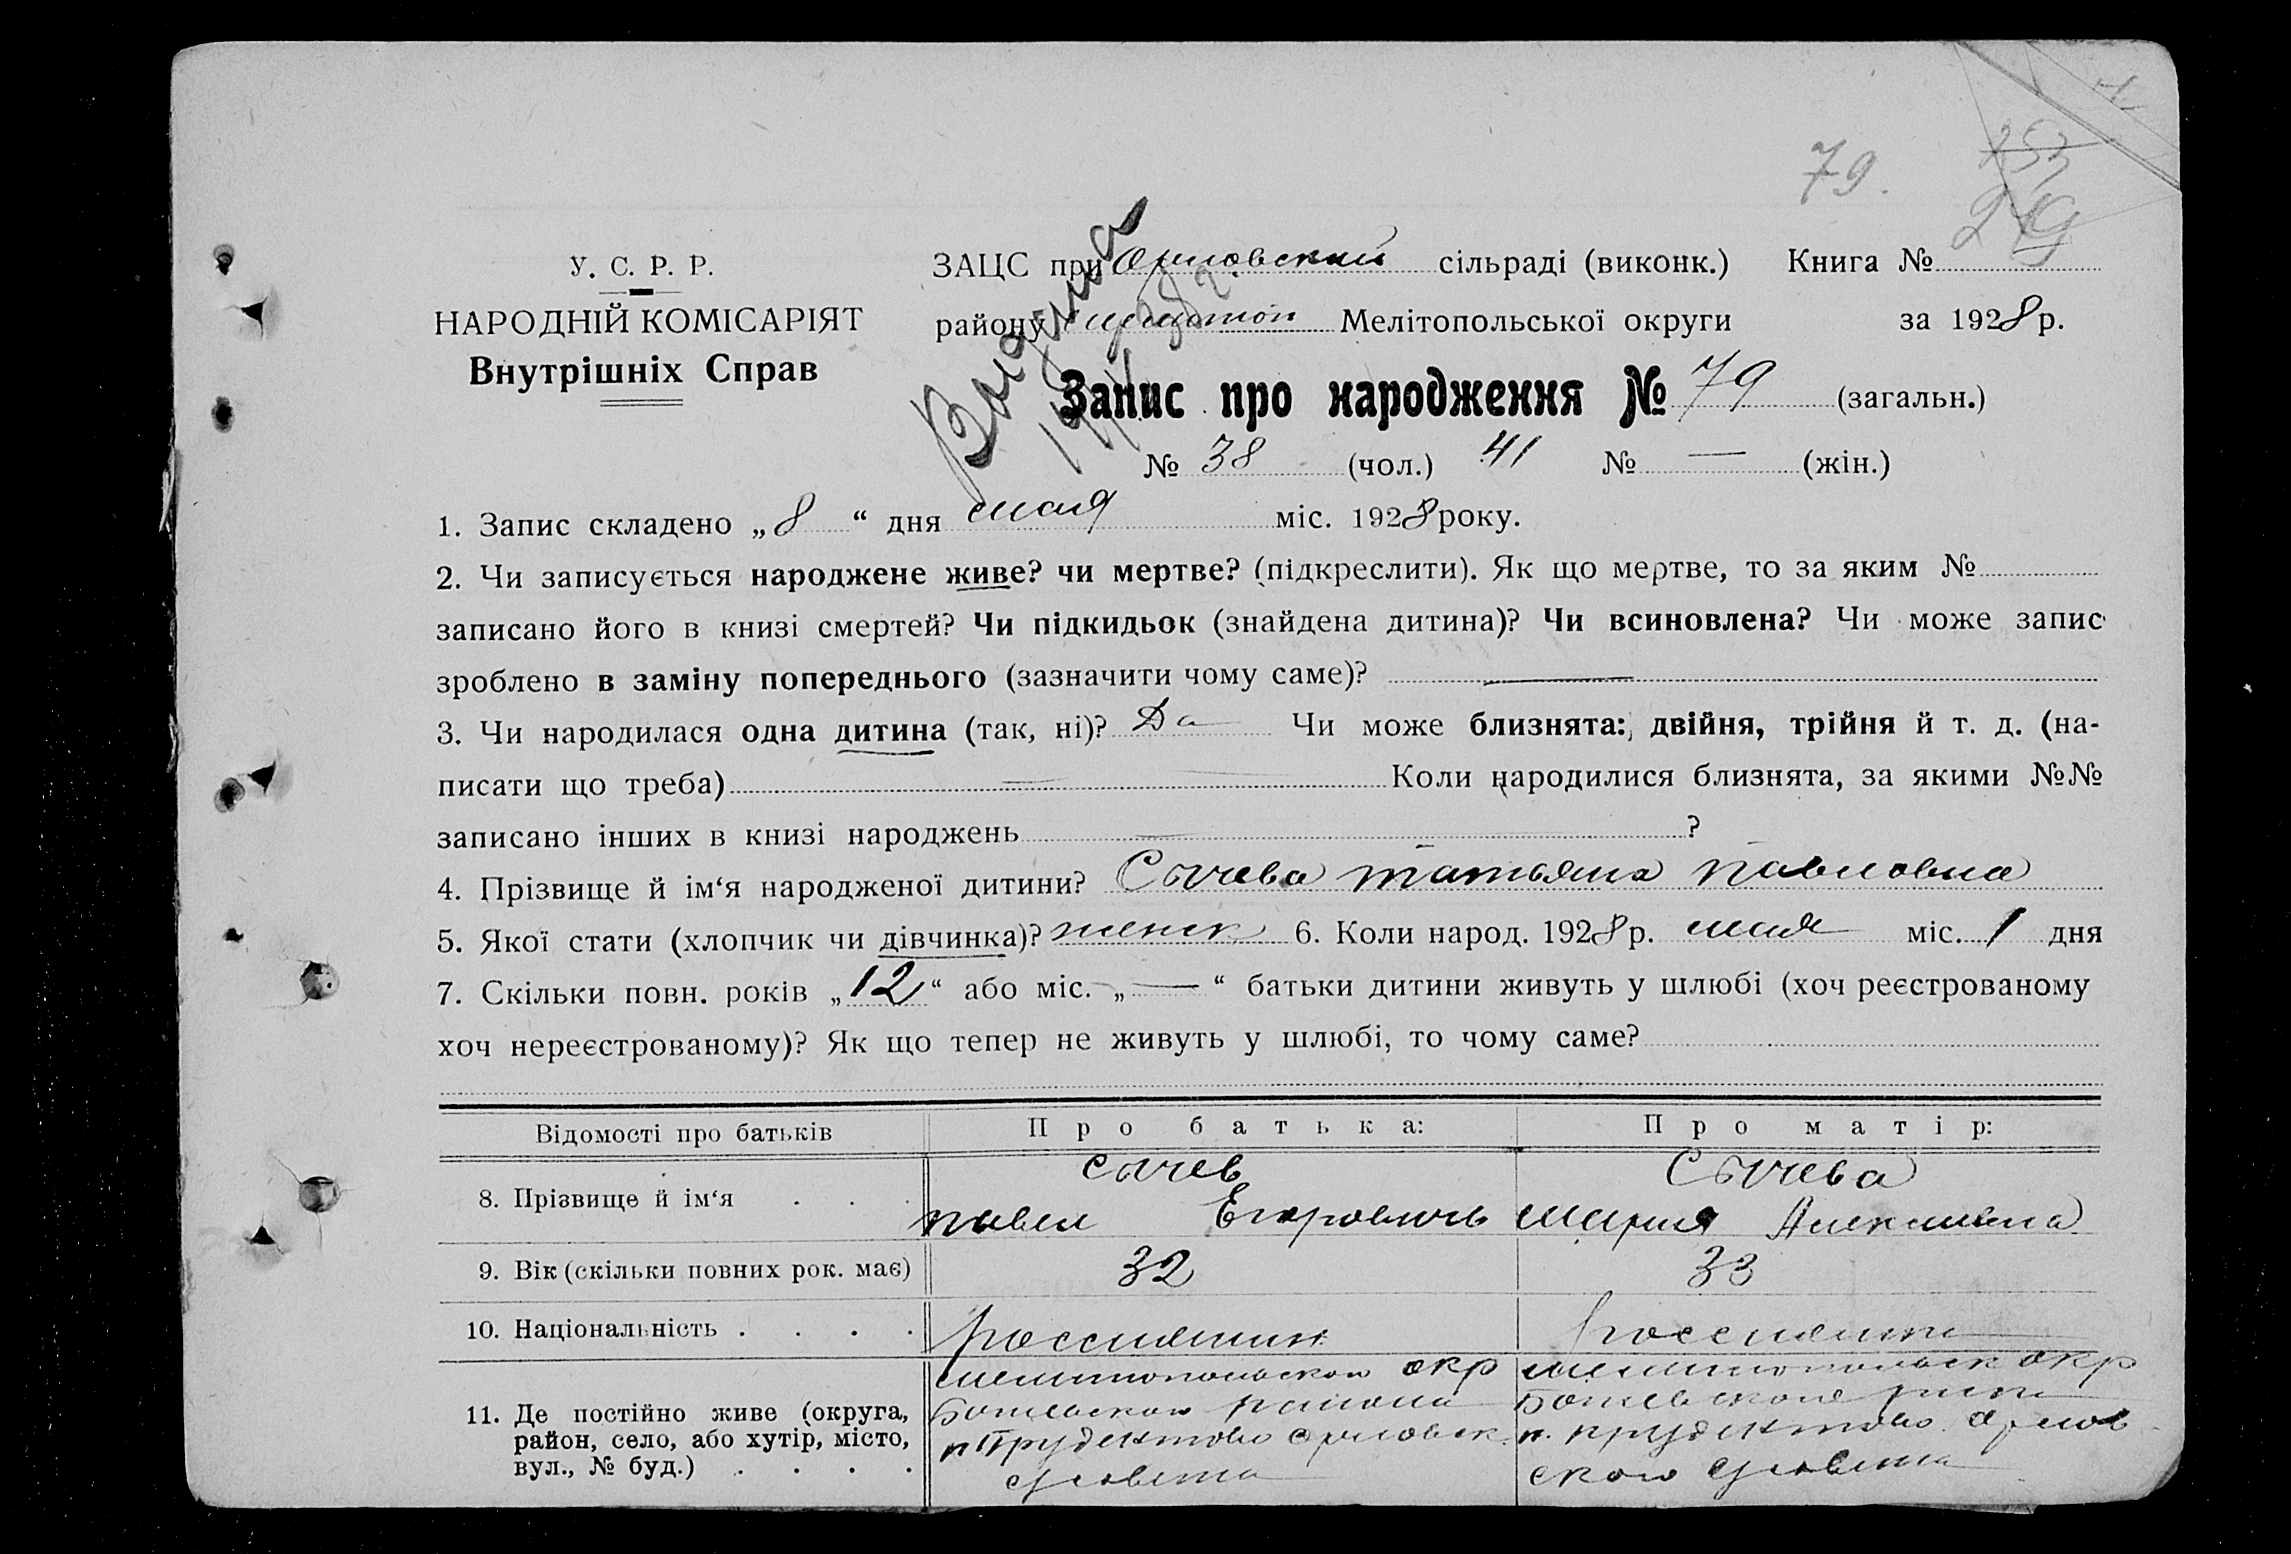 79.
253
219
У. С. Р. Р.
НАРОДНІЙ КОМІСАРІЯТ
Внутрішніх Справ
ЗАЦС при Орловский сільраді (виконк.) Книга №
району Мелітопольської округи за 1928 р.
Запис про народження № 79 (загальн.)
№ 38 (чол.) 41 № — (жін.)
1. Запис складено „8“ дня мая міс. 1928 року.
2. Чи записується народжене живе? чи мертве? (підкреслити). Як що мертве, то за яким №
записано його в книзі смертей? Чи підкидьок (знайдена дитина)? Чи всиновлена? Чи може запис
зроблено в заміну попереднього (зазначити чому саме)? —
3. Чи народилася одна дитина (так, ні)? Да Чи може близнята: двійня, трійня й т. д. (на-
писати що треба) — Коли народилися близнята, за якими №№
записано інших в книзі народжень — ?
4. Прізвище й ім‘я народженої дитини? Сычева татьяна павловна
5. Якої стати (хлопчик чи дівчинка)? женск 6. Коли народ. 1928 р. мая міс. 1 дня
7. Скільки повн. років „12“ або міс. „—“ батьки дитини живуть у шлюбі (хоч реєстрованому
хоч нереєстрованому)? Як що тепер не живуть у шлюбі, то чому саме?
Відомості про батьків Про батька: Про матір:
8. Прізвище й ім‘я . . . сычев павел Егорович Сычева мария Алексеевна
9. Вік (скільки повних рок. має) 32 33
10. Національність . . . . россиянин россиянка
11. Де постійно живе (округа, мелитопольскои окр мелитопольск окр
район, село, або хутір, місто, района
вул., № буд.) . . . . орловск. орлов
сельсовета ского сельсовета